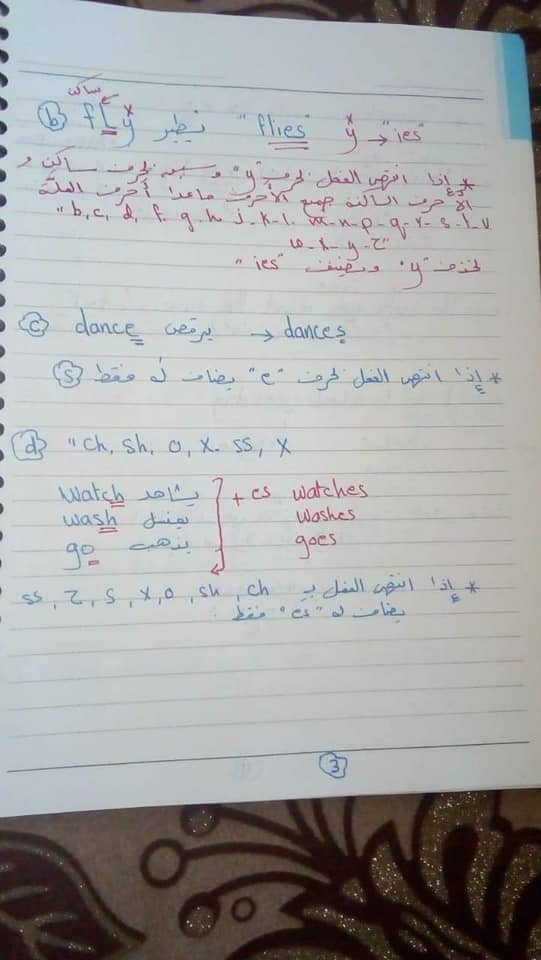 ساكن
(b) fLy يطير "flies" y → "ies"
* إذا انتهى الفعل بحرف "y" وسبقه بحرف ساكن و
الأحرف الساكنة جميع الأحرف ماعدا أحرف العلة
"b, c, d, f - g - h - j - k - l - m - n - p - q - r - s - t - v
w - x - y - z"
نحذف "y" ونضيف "ies"
(c) dance يرقص → dances
* إذا انتهى الفعل بحرف "e" يضاف له فقط (s)
(d) "ch, sh, o, x. ss, x
watch يشاهد + es watches
wash يغسل washes
go يذهب goes
* إذا انتهى الفعل بـ ch, sh, o, x, s, z, ss
يضاف له "es" فقط :
3